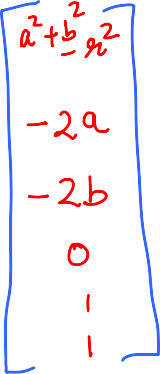 a² + b² - r²
-2a
-2b
0
1
1